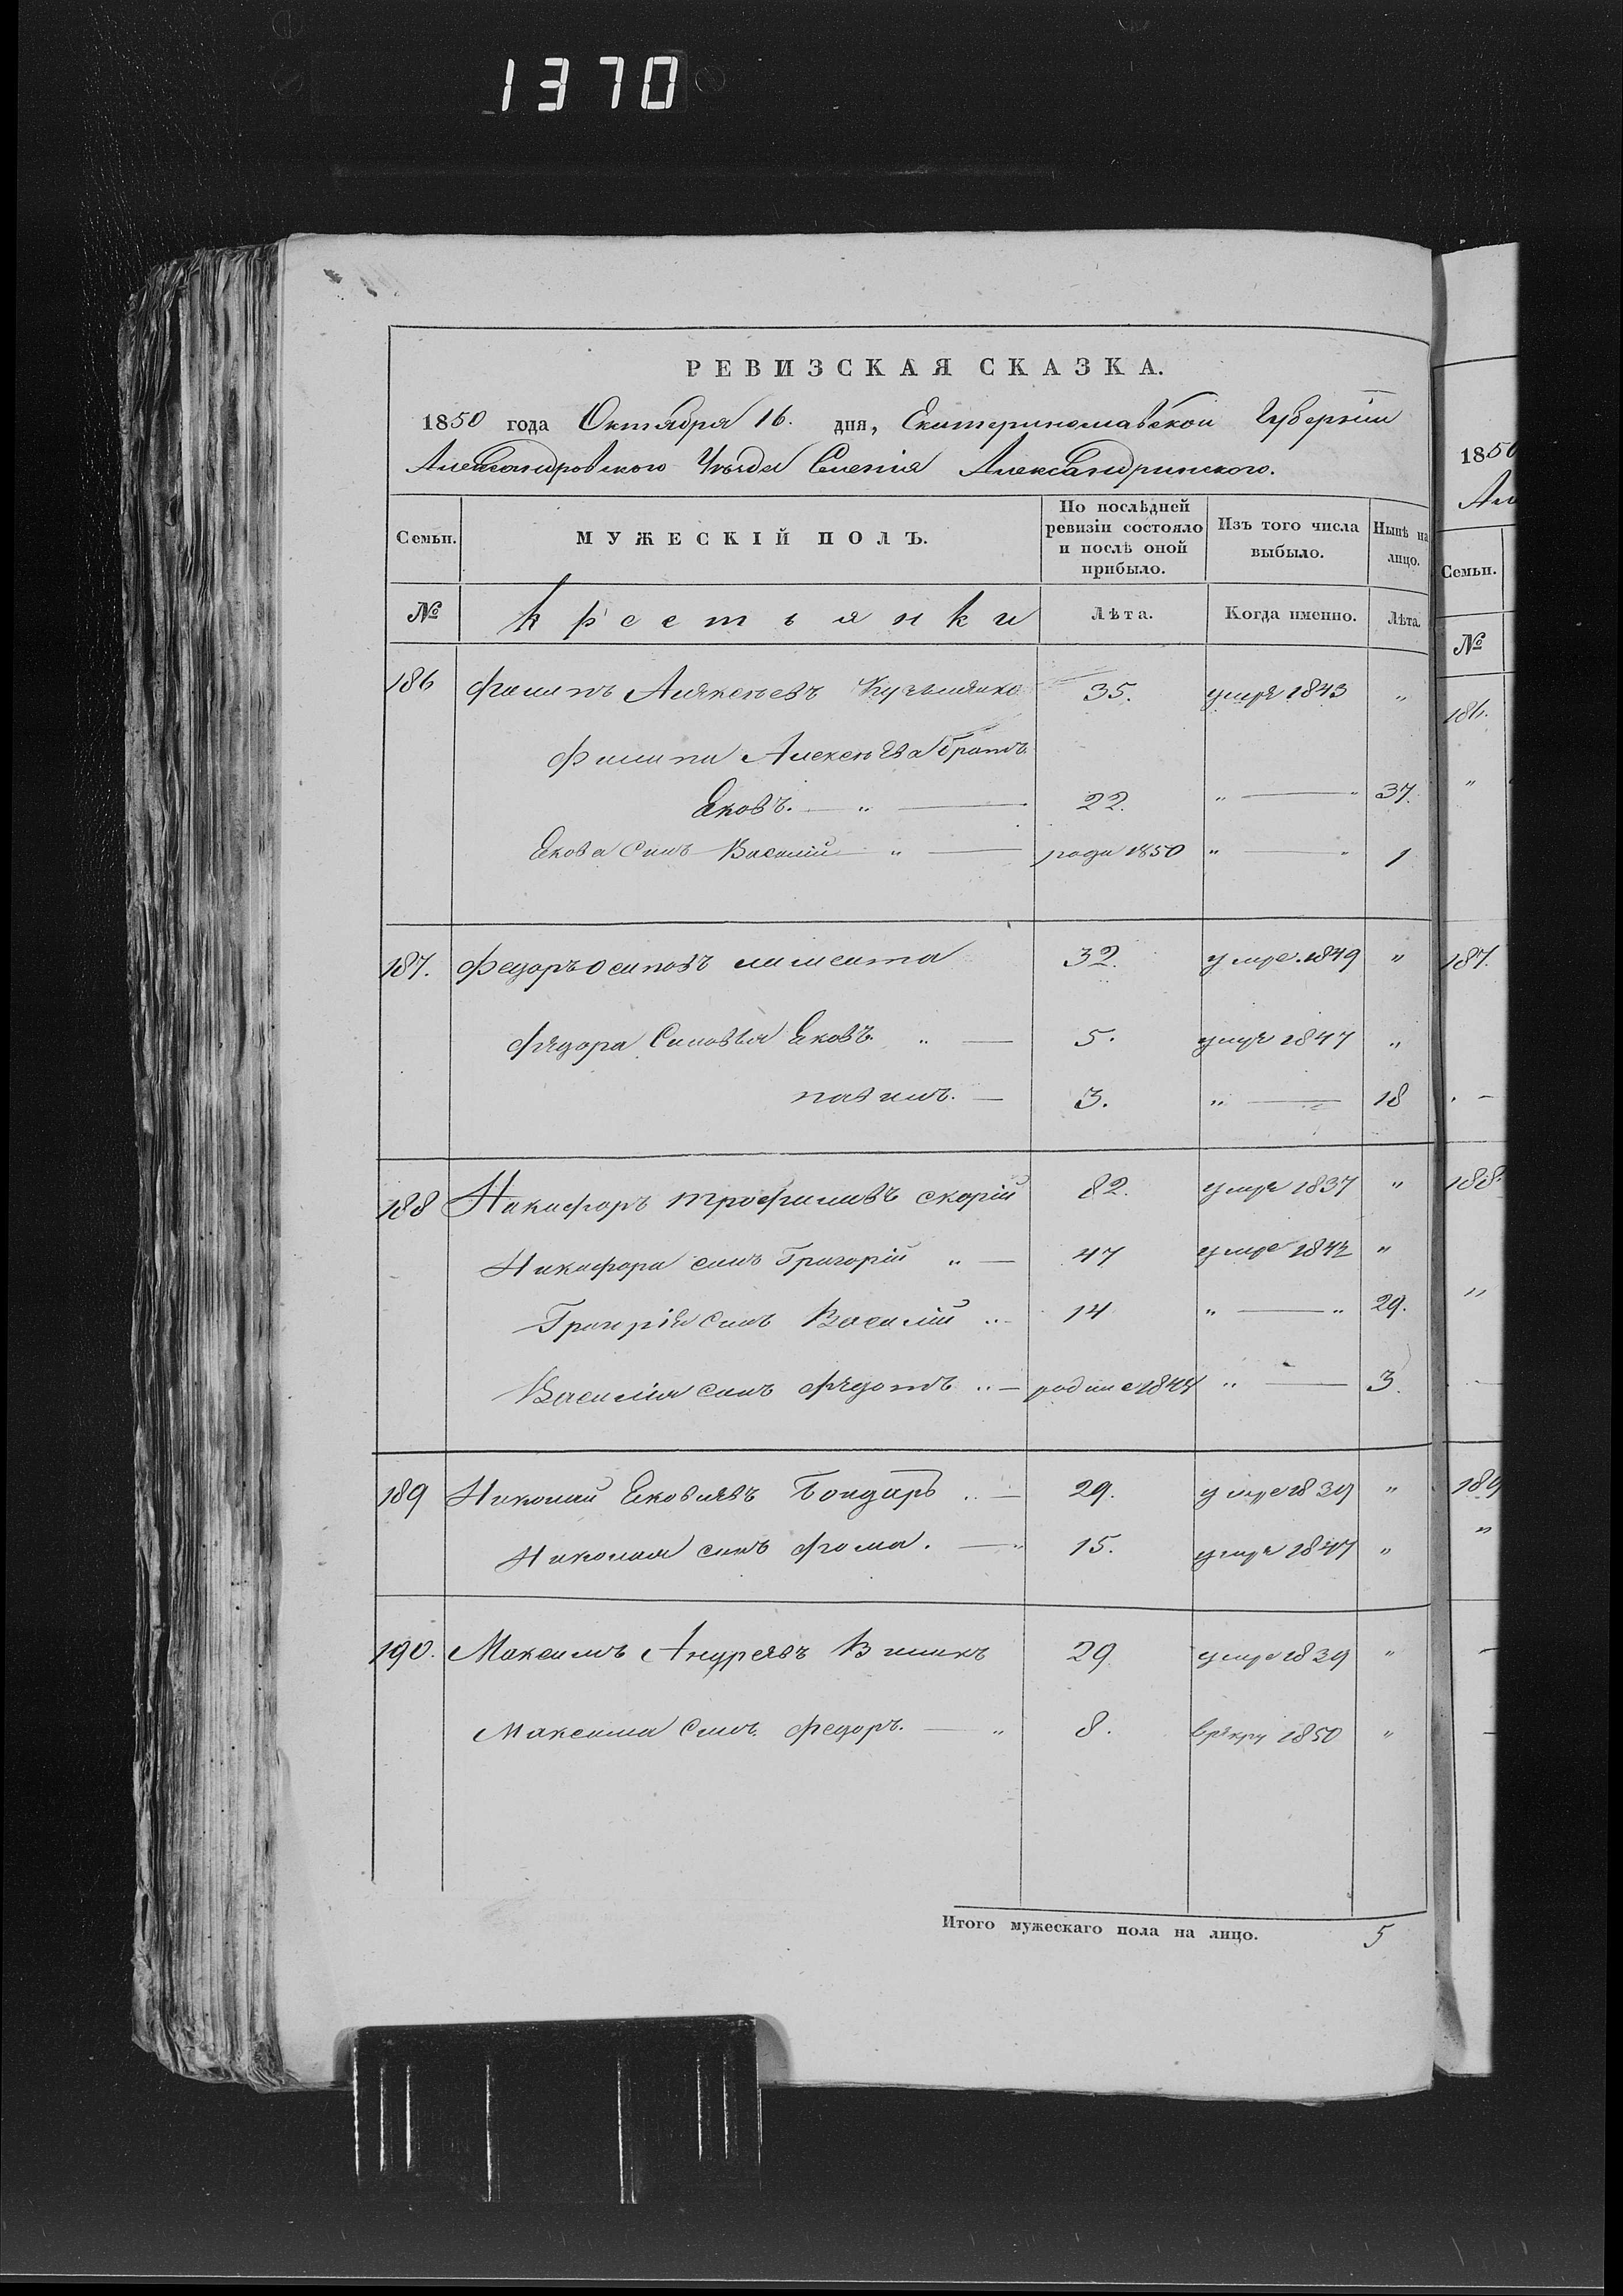 1370
РЕВИЗСКАЯ СКАЗКА.
1850 года Октября 16. дня, Екатеринославской Губернии
Александровского Уезда Селения Александринского.
Семьи. МУЖЕСКІЙ ПОЛЪ. По послѣдней ревизіи состояло и послѣ оной прибыло. Изъ того числа выбыло. Нынѣ на лицо.
№ Крестьянки Лѣта. Когда именно. Лѣта.
186 Филипъ Алексеевъ Кузьменко 35. умре 1843 "
Филипа Алексеева Братъ
Яковъ. — " — 22. " — " 37.
Якова Синъ Василій — " — роди 1850 " — " 1
187. Федоръ Осиповъ 32. умре 1849 "
Федора Синовья Яковъ. " — 5. умре 1847 "
павилъ. — 3. " — 18
188 Никифоръ трофимовъ скорій 82. умре 1837 "
Никифора синъ Григорій " — 47 умре 1842 "
Григория Синъ Василій " - 14 " — " 29.
Василія синъ Федотъ " — родився 1847 " — 3.
189 Николай Яковлевъ Бондарь " — 29. умре 1839 "
Николая синъ Фома. — " 15. умре 1847 "
190. Максимъ Андреевъ Виникъ 29 умре 1839 "
Максима Синъ. Федоръ. — " 8. врекру 1850 "
Итого мужескаго пола на лицо. 5
1850
Ал
Семьи.
№
186.
"
187.
188.
"
189
"